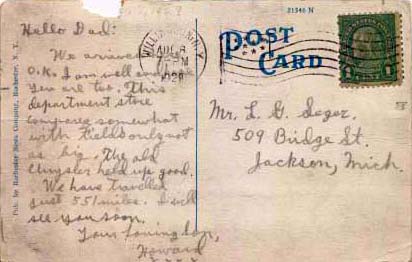 Hello Dad:
We arrived
O.K. I am well and hope
you are too. This
department store
compares somewhat
with Fields only not
as big. The old
Chrysler held up good.
We have travelled
just 551 miles. I will
see you soon.
Your loving son,
Howard
Pub. by Rochester News Company, Rochester, N. Y.
N.Y.
AUG 8
PM
21346 N
POST
CARD
1 CENT 1
Mr. L. G. Seger.
509 Bridge St.
Jackson, Mich.